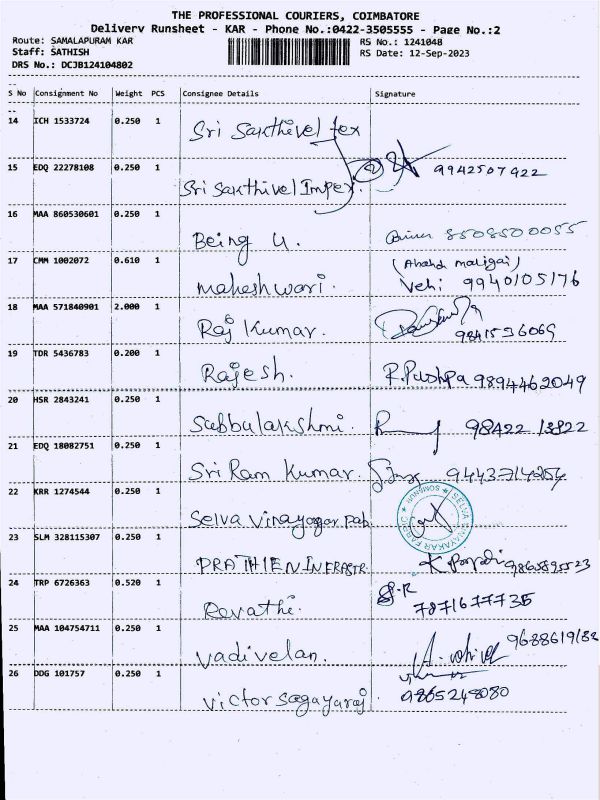 THE PROFESSIONAL COURIERS, COIMBATORE
Delivery Runsheet - KAR - Phone No.:0422-3505555 - Page No.:2
Route: SAMALAPURAM KAR RS No.: 1241048
Staff: SATHISH RS Date: 12-Sep-2023
DRS No.: DCJB124104802
S No Consignment No Weight PCS Consignee Details Signature
14 ICH 1533724 0.250 1 Sri Sakthivel tex
15 EDQ 22278108 0.250 1 Sri Sakthivel Impex. 9942507922
16 MAA 860530601 0.250 1 Being U. 8508500055
17 CMM 1002072 0.610 1 Maheshwari. Veh: 9940105176
18 MAA 571840901 2.000 1 Raj Kumar. 9841536069
19 TDR 5436783 0.200 1 Rajesh. R.Pushpa 9894462049
20 HSR 2843241 0.250 1 Subbulakshmi. 98422 13822
21 EDQ 18082751 0.250 1 Sri Ram Kumar.
22 KRR 1274544 0.250 1 Selva Vinayagar Fab
23 SLM 328115307 0.250 1 PRATHIEN INFRASTR.
24 TRP 6726363 0.520 1 Revathi. S.R 7871677735
25 MAA 104754711 0.250 1 Vadivelan.
26 DDG 101757 0.250 1 Victor Sagayaraj. 9865248080